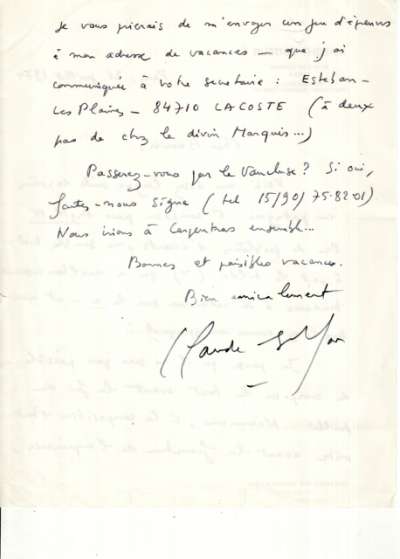 Je vous prierais de m'envoyer un jeu d'épreuves
à mon adresse de vacances – que j'ai
communiquée à votre secrétaire : Esteban –
Les Plaines – 84710 LACOSTE (à deux
pas de chez le divin Marquis...)
Passerez-vous par le Vaucluse? Si oui,
faites-nous signe (tel 15/90/75.82.01)
Nous irions à Carpentras ensemble...
Bonnes et paisibles vacances.
Bien amicalement
Claude